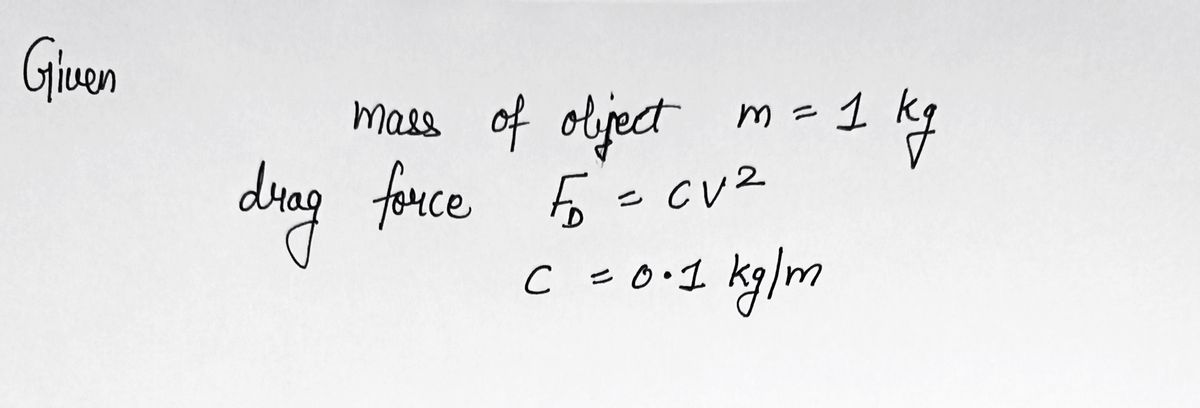 Given
mass of object m = 1 kg
drag force F_D = CV²
C = 0.1 kg/m